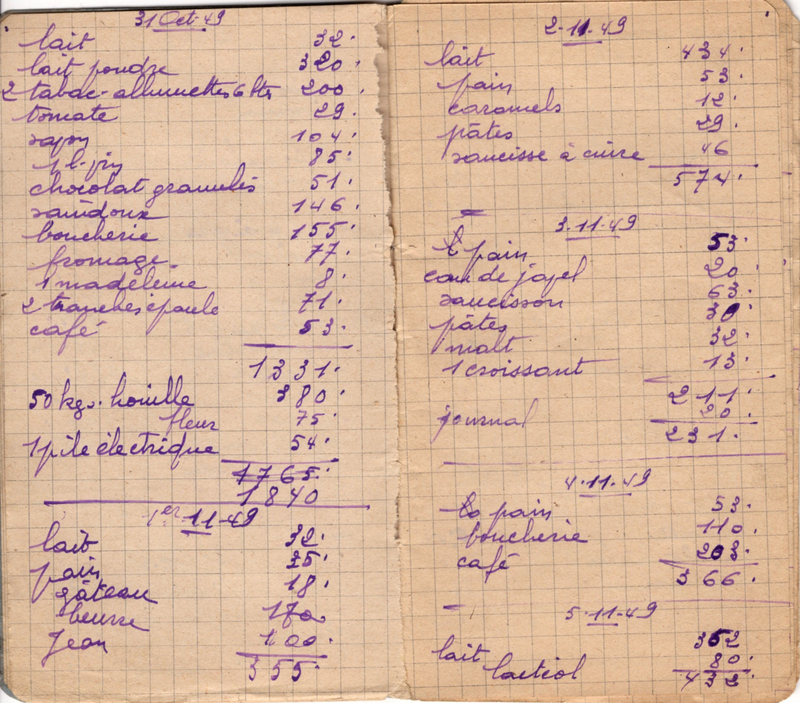 31 Oct. 49
lait 32.
lait poudre 320.
2 tabac-allumettes 6 bts 200.
tomate 29.
savon 104.
85.
chocolat granulés 51.
saindoux 146.
boucherie 155.
fromage 77.
1 madeleine 8.
2 tranches épaule 71.
café 53.
1331.
50 kgs. houille 380.
fleur 75.
1 pile électrique 54.
1765.
1840
1er-11-49
lait 32.
pain 35.
gâteau 18.
beurre 170
Jean 100.
355.
2-11-49
lait 434.
pain 53.
caramels 12.
pâtes 29.
saucisse à cuire 46
574.
3-11-49
pain 53.
20.
saucisson 63.
pâtes 30.
malt 32.
1 croissant 13.
211.
journal 20.
231.
4-11-49
pain 53.
boucherie 110.
café 203.
366.
5-11-49
lait 352
lactéol 80.
432